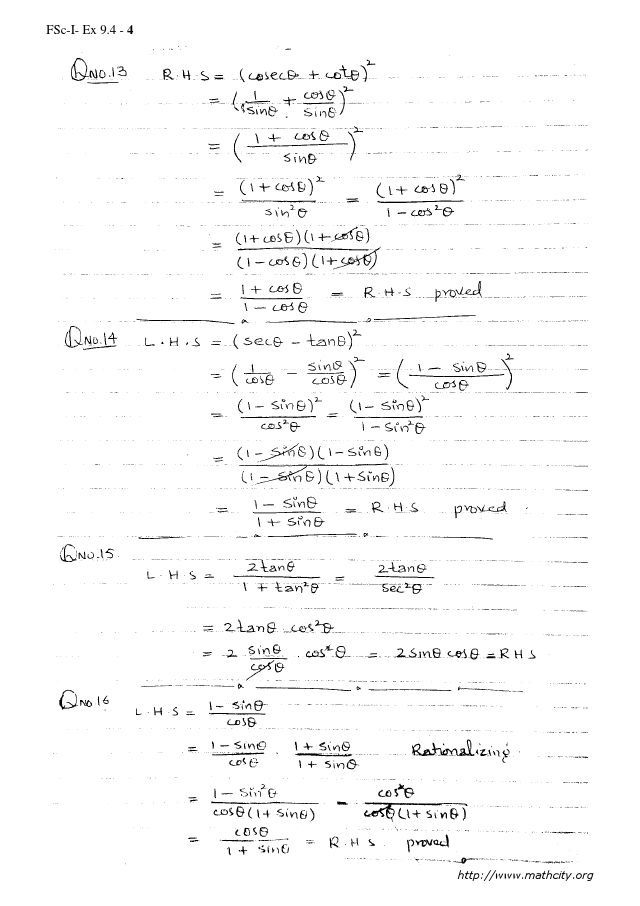 FSc-I- Ex 9.4 - 4
Q No.13 R.H.S = (cosecθ + cotθ)²
= (1/sinθ + cosθ/sinθ)²
= ((1 + cosθ)/sinθ)²
= (1 + cosθ)²/sin²θ = (1 + cosθ)²/(1 - cos²θ)
= (1+cosθ)(1+cosθ)/(1-cosθ)(1+cosθ)
= (1 + cosθ)/(1 - cosθ) = R.H.S proved
Q No.14 L.H.S = (secθ - tanθ)²
= (1/cosθ - sinθ/cosθ)² = ((1 - sinθ)/cosθ)²
= (1 - sinθ)²/cos²θ = (1 - sinθ)²/(1 - sin²θ)
= (1 - sinθ)(1 - sinθ)/(1 - sinθ)(1 + sinθ)
= (1 - sinθ)/(1 + sinθ) = R.H.S proved.
Q No.15
L.H.S = 2tanθ/(1 + tan²θ) = 2tanθ/sec²θ
= 2tanθ cos²θ
= 2 sinθ/cosθ . cos²θ = 2 sinθ cosθ = R H S
Q No 16 L.H.S = (1 - sinθ)/cosθ
= (1 - sinθ)/cosθ . (1 + sinθ)/(1 + sinθ) Rationalizing
= (1 - sin²θ)/cosθ(1 + sinθ) = cos²θ/cosθ(1 + sinθ)
= cosθ/(1 + sinθ) = R.H.S. proved
http://www.mathcity.org